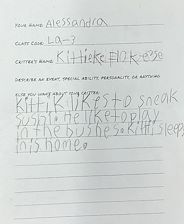 YOUR NAME: Alessandra
CLASS CODE: La-3
CRITTER'S NAME: Kittieke
DESCRIBE AN EVENT, SPECIAL ABILITY, PERSONALITY, OR ANYTHING
ELSE YOU WANT ABOUT YOUR CRITTER:
Kitti k likes to sneak
sushi. He like to play
in the bushes. Kitti sleeps
in is home.